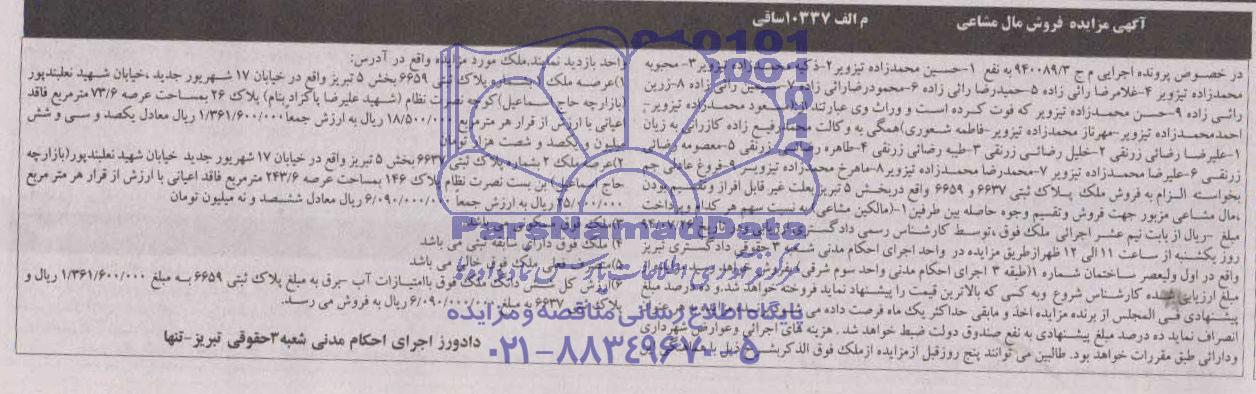 آگهی مزایده فروش مال مشاعی
م الف ۱۰۳۳۷ساقی
در خصوص پرونده اجرایی م ج ۹۴۰۰۸۹/۳ به نفع ۱-حسین محمدزاده تیزویر ۲-ذکیه محمدزاده تیزویر ۳-محبوبه
محمدزاده تیزویر ۴-غلامرضا رائی زاده ۵-حمیدرضا رائی زاده ۶-محمودرضارائی زاده رائی زاده ۸-زرین
رائی زاده ۹-حسن محمدزاده تیزویر که فوت کرده است و وراث وی عبارتند محمدزاده تیزویر-
احمدمحمدزاده تیزویر-مهرناز محمدزاده تیزویر-فاطمه شعوری)همگی به وکالت محمدرفیع زاده کازرانی به زیان
۱-علیرضا رضائی زرنقی ۲-خلیل رضائی زرنقی ۳-طیبه رضائی زرنقی ۴-طاهره رضائی زرنقی ۵-معصومه رضائی
زرنقی ۶-علیرضا محمدزاده تیزویر ۷-محمدرضا محمدزاده تیزویر۸-ماهرخ محمدزاده تیزویر ۹-فروغ
بخواسته الزام به فروش ملک پلاک ثبتی ۶۶۳۷ و ۶۶۵۹ واقع دربخش ۵ تبریز بعلت غیر قابل افراز وتقسیم بودن
،مال مشاعی مزبور جهت فروش و تقسیم وجوه حاصله بین طرفین ۱-(مالکین مشاعی)به نسبت سهم هر کدام وپرداخت
مبلغ -ریال از بابت نیم عشر اجرائی ملک فوق ،توسط کارشناس رسمی دادگستری
روز یکشنبه از ساعت ۱۱ الی ۱۲ ظهرازطریق مزایده در واحد اجرای احکام مدنی شعبه ۳ حقوقی دادگستری تبریز
واقع در اول ولیعصر ساختمان شماره ۱(طبقه ۳ اجرای احکام مدنی واحد سوم شرقی)
مبلغ ارزیابی شده کارشناس شروع وبه کسی که بالاترین قیمت را پیشنهاد نماید فروخته خواهد شد.و ده درصد مبلغ
پیشنهادی فی المجلس از برنده مزایده اخذ و مابقی حداکثر یک ماه فرصت داده می شود
انصراف نماید ده درصد مبلغ پیشنهادی به نفع صندوق دولت ضبط خواهد شد . هزینه های اجرائی وعوارض شهرداری
ودارائی طبق مقررات خواهد بود. طالبین می توانند پنج روزقبل ازمزایده ازملک فوق الذکربشرح ذیل
واحد بازدید نمایند.ملک مورد مزایده واقع در آدرس:
۱)عرصه ملک ۱ بشماره پلاک ثبتی ۶۶۵۹ بخش ۵ تبریز واقع در خیابان ۱۷ شهریور جدید ،خیابان شهید نعلبندپور
(بازارچه حاج اسماعیل)کوچه نصرت نظام (شهید علیرضا پاکزاد بنام) پلاک ۲۶ بمساحت عرصه ۷۳/۶ مترمربع فاقد
اعیانی با ارزش از قرار هر مترمربع ۱۸/۵۰۰/۰۰۰ ریال به ارزش جمعا ۱/۳۶۱/۶۰۰/۰۰۰ ریال معادل یکصد و سی و شش
میلیون و یکصد و شصت هزار تومان
۲)عرصه ملک ۲ بشماره پلاک ثبتی ۶۶۳۷ بخش ۵ تبریز واقع در خیابان ۱۷ شهریور جدید خیابان شهید نعلبندپور(بازارچه
حاج اسماعیل) بن بست نصرت نظام پلاک ۱۴۶ بمساحت عرصه ۲۴۳/۶ مترمربع فاقد اعیانی با ارزش از قرار هر متر مربع
۲۵/۰۰۰/۰۰۰ ریال به ارزش جمعا ۶/۰۹۰/۰۰۰/۰۰۰ ریال معادل ششصد و نه میلیون تومان
۳)ملک فوق مسکونی می باشد
۴) ملک فوق دارای سابقه ثبتی می باشد
۵)متصرف فعلی ملک فوق خالی می باشد
۶)ارزش کل شش دانگ ملک فوق باامتیازات آب -برق به مبلغ پلاک ثبتی ۶۶۵۹ به مبلغ ۱/۳۶۱/۶۰۰/۰۰۰ ریال و
پلاک ثبتی ۶۶۳۷ به مبلغ ۶/۰۹۰/۰۰۰/۰۰۰ ریال به فروش می رسد.
دادورز اجرای احکام مدنی شعبه ۳حقوقی تبریز-تنها
ParsNamadData
پایگاه اطلاع رسانی مناقصه و مزایده
۰۲۱-۸۸۳۴۹۶۷۰-۵